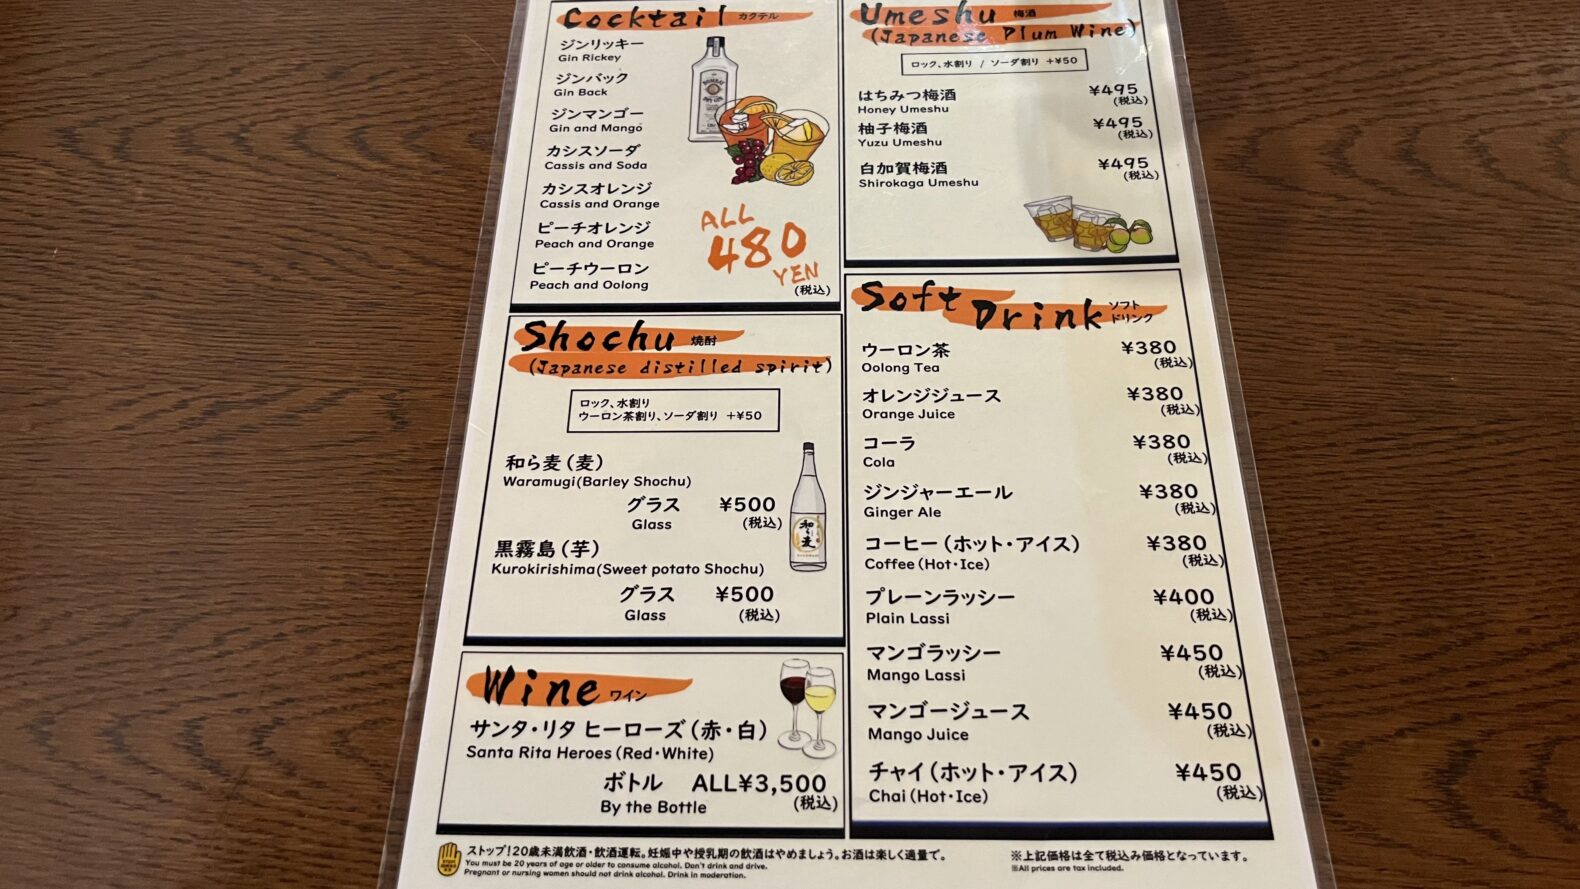 Cocktail カクテル
ジンリッキー
Gin Rickey
ジンバック
Gin Back
ジンマンゴー
Gin and Mango
カシスソーダ
Cassis and Soda
カシスオレンジ
Cassis and Orange
ピーチオレンジ
Peach and Orange
ピーチウーロン
Peach and Oolong
BOMBAY
ALL
480
YEN
(税込)
Shochu 焼酎
(Japanese distilled spirit)
ロック、水割り
ウーロン茶割り、ソーダ割り +¥50
和ら麦(麦)
Waramugi(Barley Shochu)
グラス ¥500
Glass (税込)
黒霧島(芋)
Kurokirishima(Sweet potato Shochu)
グラス ¥500
Glass (税込)
和ら麦
Wine ワイン
サンタ・リタ ヒーローズ(赤・白)
Santa Rita Heroes(Red・White)
ボトル ALL¥3,500
By the Bottle (税込)
Umeshu 梅酒
(Japanese Plum Wine)
ロック、水割り / ソーダ割り +¥50
はちみつ梅酒 ¥495
Honey Umeshu (税込)
柚子梅酒 ¥495
Yuzu Umeshu (税込)
白加賀梅酒 ¥495
Shirokaga Umeshu (税込)
Soft Drink ソフト
ドリンク
ウーロン茶 ¥380
Oolong Tea (税込)
オレンジジュース ¥380
Orange Juice (税込)
コーラ ¥380
Cola (税込)
ジンジャーエール ¥380
Ginger Ale (税込)
コーヒー(ホット・アイス) ¥380
Coffee(Hot・Ice) (税込)
プレーンラッシー ¥400
Plain Lassi (税込)
マンゴラッシー ¥450
Mango Lassi (税込)
マンゴージュース ¥450
Mango Juice (税込)
チャイ(ホット・アイス) ¥450
Chai(Hot・Ice) (税込)
ストップ!20歳未満飲酒・飲酒運転。妊娠中や授乳期の飲酒はやめましょう。お酒は楽しく適量で。
You must be 20 years of age or older to consume alcohol. Don't drink and drive.
Pregnant or nursing women should not drink alcohol. Drink in moderation.
※上記価格は全て税込み価格となっています。
※All prices are tax included.